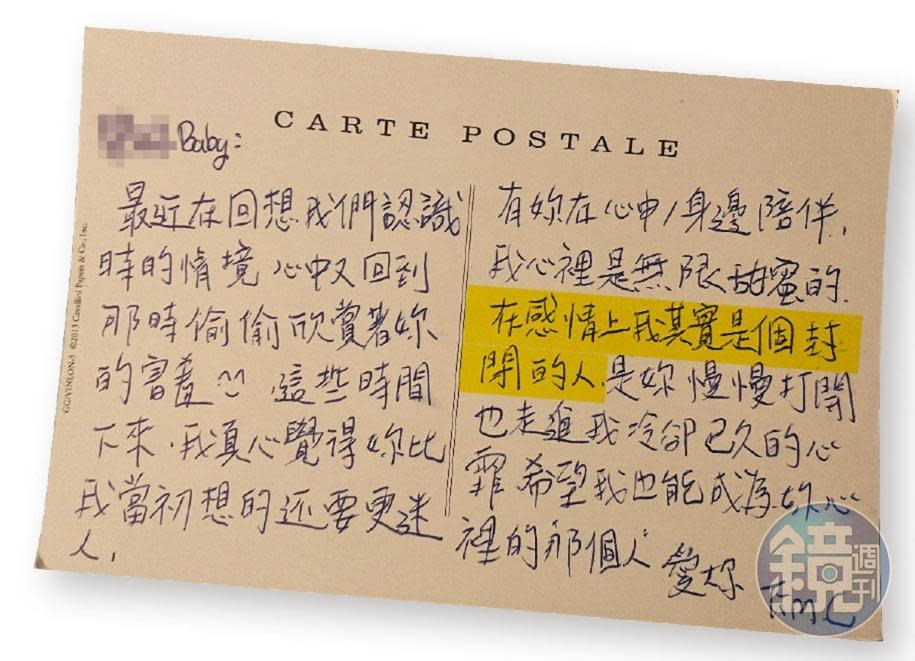 CARTE POSTALE
Baby:
最近在回想我們認識
時的情境心中又回到
那時偷偷欣賞著妳
的害羞~ 這些時間
下來,我真心覺得妳比
我當初想的还要更迷
人,
有妳在心中/身邊陪伴,
我心裡是無限甜蜜的.
在感情上我其實是個封
閉的人.是妳慢慢打開
也走進我冷卻已久的心
霏希望我也能成為妳心
裡的那個人
愛妳
GG/VINLON-3 ©2013 Cavallini Papers & Co., Inc.
鏡週刊